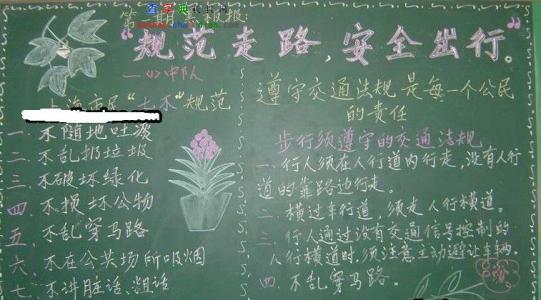 第一期黑板报
"规范走路,安全出行。"
——四(1)中队
上海市民"七不"规范
一、不随地吐痰
二、不乱扔垃圾
三、不破坏绿化
四、不损坏公物
五、不乱穿马路
六、不在公共场所吸烟
七、不讲脏话、粗话
遵守交通法规是每一个公民
的责任
步行须遵守的交通法规
一、行人须在人行道内行走,没有人行
道的靠路边行走。
二、横过车行道,须走人行横道。
三、行人通过没有交通信号控制的
人行横道时,须注意主动避让车辆。
四、不乱穿马路。